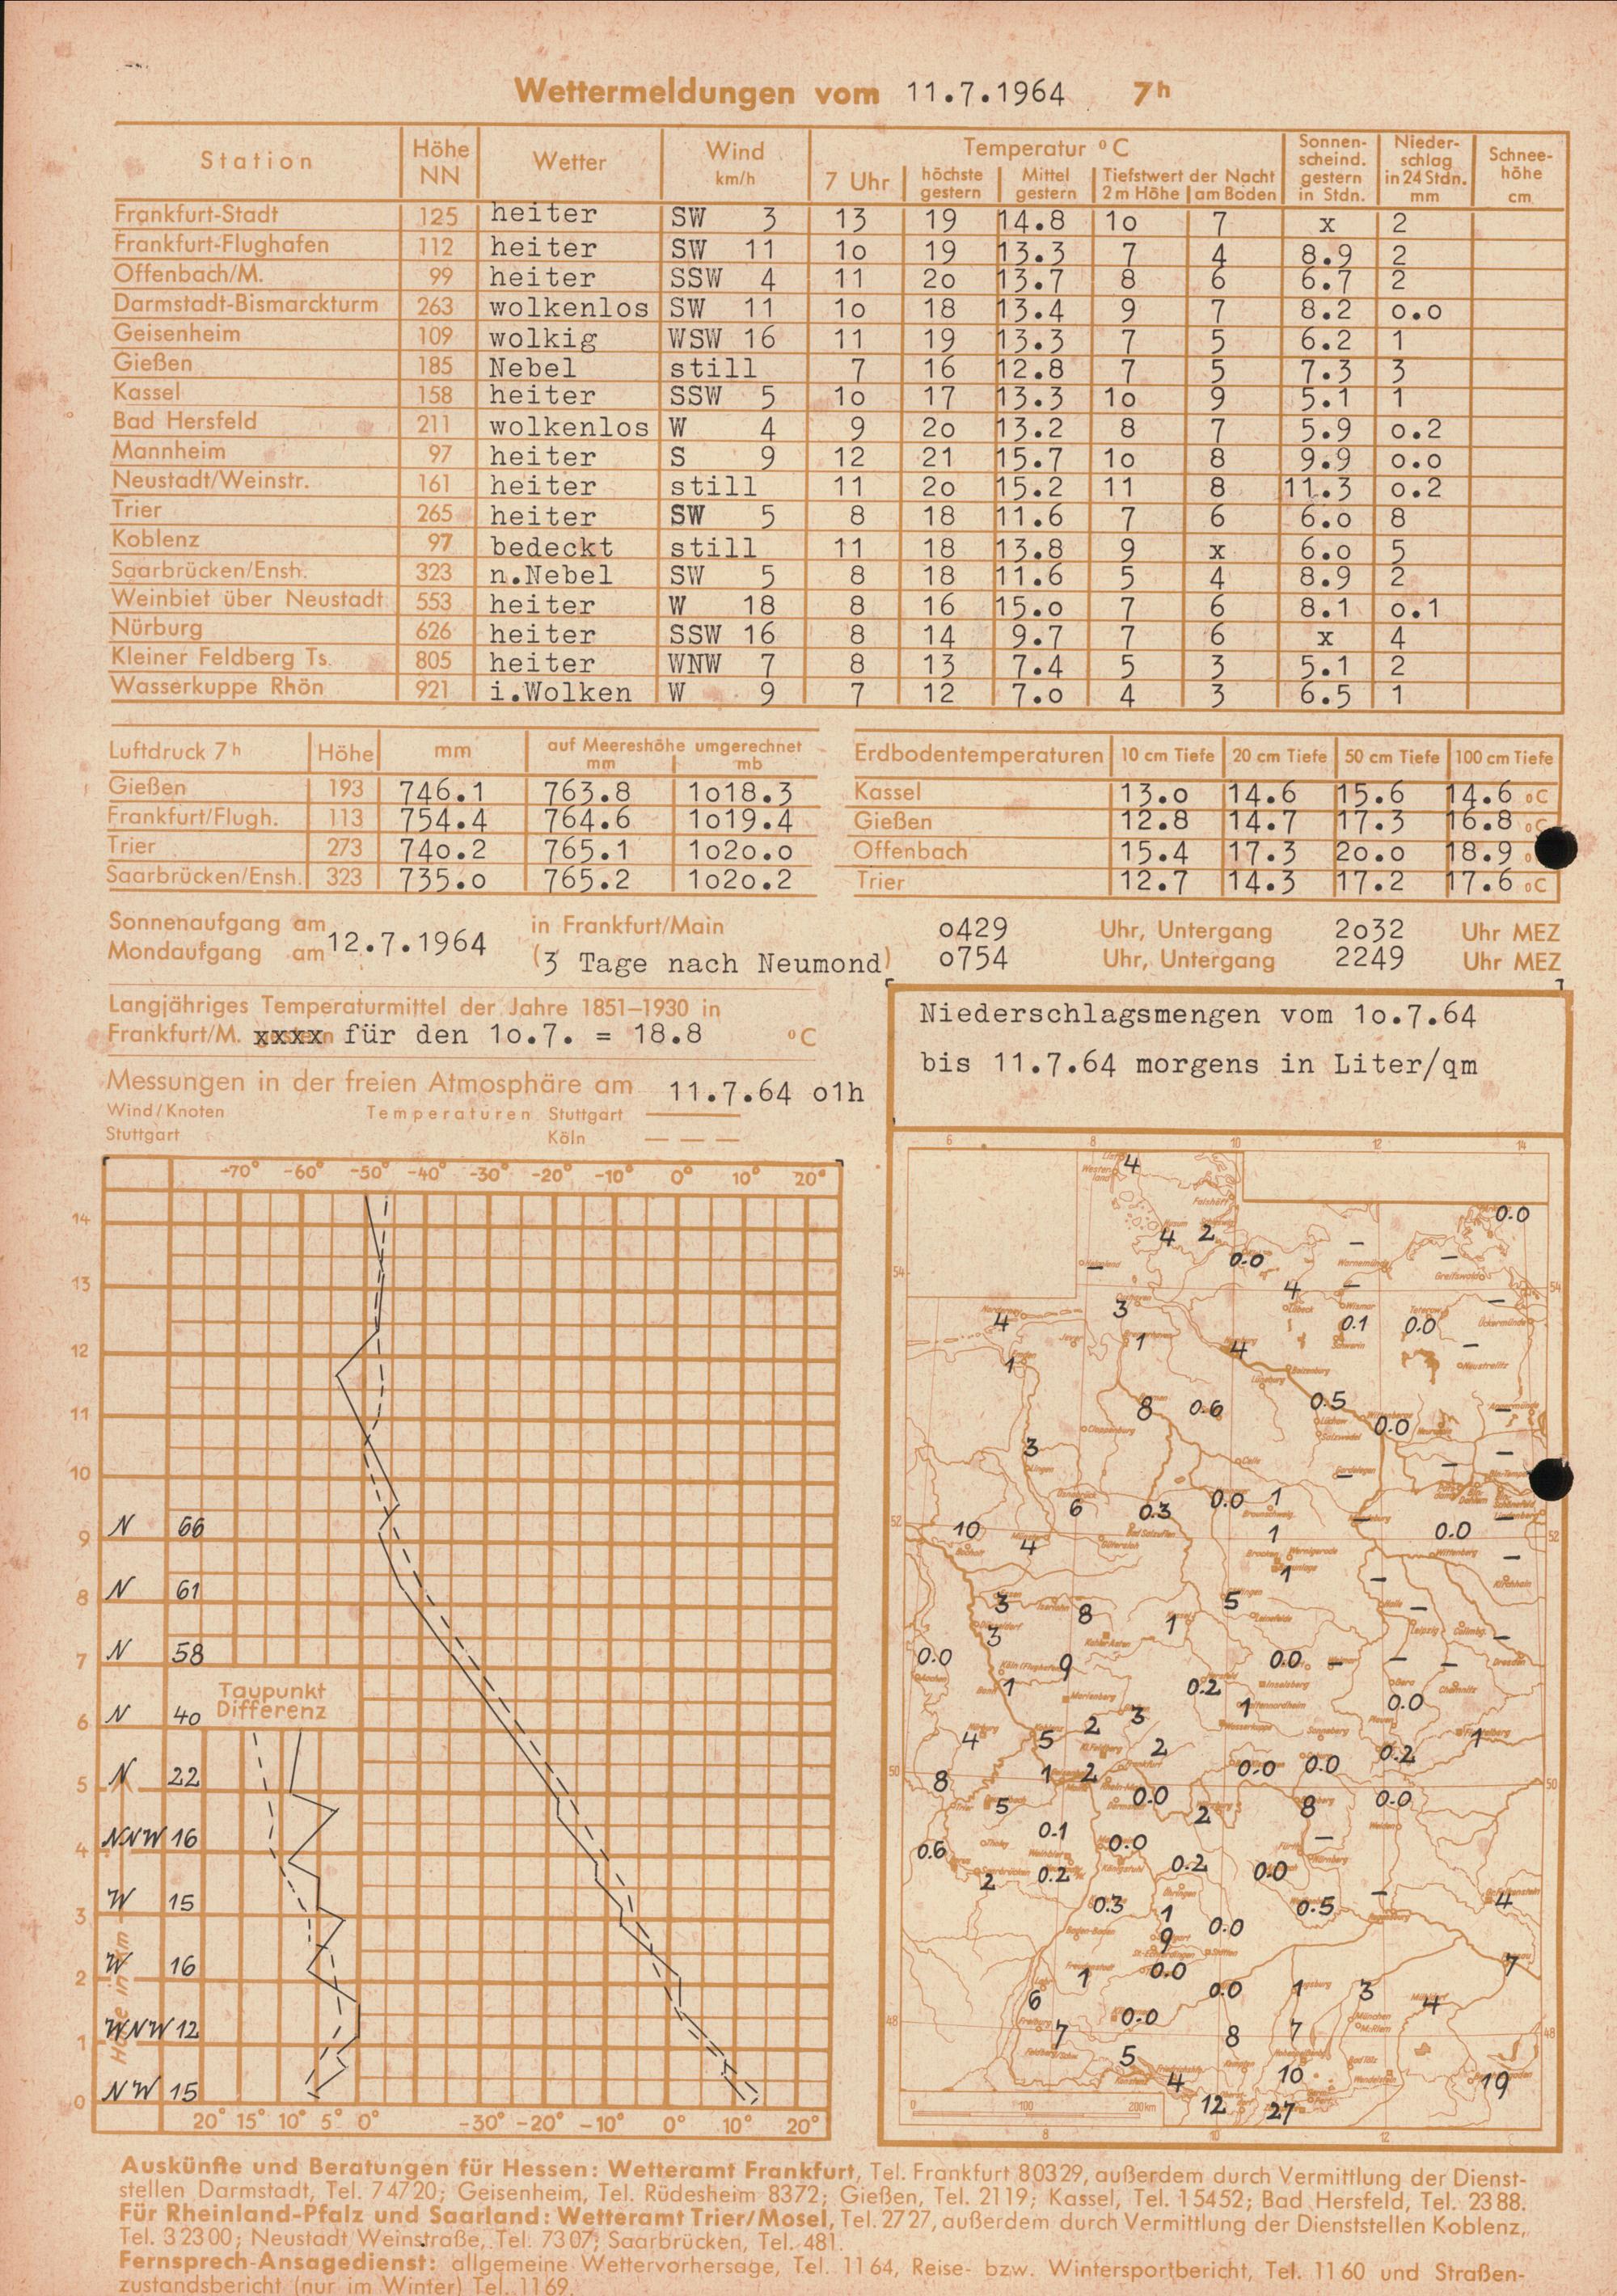 Wettermeldungen vom 11.7.1964 7h
Station Höhe NN Wetter Wind km/h Temperatur °C Sonnenscheind. gestern in Stdn. Niederschlag in 24 Stdn. mm Schneehöhe cm
7 Uhr höchste gestern Mittel gestern Tiefstwert der Nacht 2 m Höhe am Boden
Frankfurt-Stadt 125 heiter SW 3 13 19 14.8 1o 7 x 2
Frankfurt-Flughafen 112 heiter SW 11 1o 19 13.3 7 4 8.9 2
Offenbach/M. 99 heiter SSW 4 11 2o 13.7 8 6 6.7 2
Darmstadt-Bismarckturm 263 wolkenlos SW 11 1o 18 13.4 9 7 8.2 o.o
Geisenheim 109 wolkig WSW 16 11 19 13.3 7 5 6.2 1
Gießen 185 Nebel still 7 16 12.8 7 5 7.3 3
Kassel 158 heiter SSW 5 1o 17 13.3 1o 9 5.1 1
Bad Hersfeld 211 wolkenlos W 4 9 2o 13.2 8 7 5.9 o.2
Mannheim 97 heiter S 9 12 21 15.7 1o 8 9.9 o.o
Neustadt/Weinstr. 161 heiter still 11 2o 15.2 11 8 11.3 o.2
Trier 265 heiter SW 5 8 18 11.6 7 6 6.o 8
Koblenz 97 bedeckt still 11 18 13.8 9 x 6.o 5
Saarbrücken/Ensh. 323 n.Nebel SW 5 8 18 11.6 5 4 8.9 2
Weinbiet über Neustadt 553 heiter W 18 8 16 15.o 7 6 8.1 o.1
Nürburg 626 heiter SSW 16 8 14 9.7 7 6 x 4
Kleiner Feldberg Ts. 805 heiter WNW 7 8 13 7.4 5 3 5.1 2
Wasserkuppe Rhön 921 i.Wolken W 9 7 12 7.o 4 3 6.5 1
Luftdruck 7h Höhe mm auf Meereshöhe umgerechnet mm mb
Gießen 193 746.1 763.8 1o18.3
Frankfurt/Flugh. 113 754.4 764.6 1o19.4
Trier 273 74o.2 765.1 1o2o.o
Saarbrücken/Ensh. 323 735.o 765.2 1o2o.2
Erdbodentemperaturen 10 cm Tiefe 20 cm Tiefe 50 cm Tiefe 100 cm Tiefe
Kassel 13.o 14.6 15.6 14.6 °C
Gießen 12.8 14.7 17.3 16.8 °C
Offenbach 15.4 17.3 2o.o 18.9
Trier 12.7 14.3 17.2 17.6 °C
Sonnenaufgang am in Frankfurt/Main o429 Uhr, Untergang 2o32 Uhr MEZ
12.7.1964
Mondaufgang am (3 Tage nach Neumond) o754 Uhr, Untergang 2249 Uhr MEZ
Langjähriges Temperaturmittel der Jahre 1851–1930 in
Frankfurt/M. xxxx für den 1o.7. = 18.8 °C
Messungen in der freien Atmosphäre am 11.7.64 o1h
Wind/Knoten Temperaturen Stuttgart
Stuttgart Köln
-70° -60° -50° -40° -30° -20° -10° 0° 10° 20°
14
13
12
11
10
N 66
9
8 N 61
N 58
7
Taupunkt
Differenz
N 40
6
N 22
5
NNW 16
4
W 15
3
W 16
2
WNW 12
1
Höhe in km
NW 15
0
20° 15° 10° 5° 0° -30° -20° -10° 0° 10° 20°
Niederschlagsmengen vom 1o.7.64
bis 11.7.64 morgens in Liter/qm
6 8 10 12 14
4
0.0
4 2
0.0
54 54
4
4 3
0.1 0.0
1 4
1
8 0.6 0.5
0.0
3
6 0.3 0.0 1
52 10 1 0.0 52
4
1
3 8 1 5
3
0.0 9 0.0
1 0.2 1 0.0
3
4 5 2 2 1
0.0 0.0 0.2
50 8 1 2 50
5 0.0 2 8 0.0
0.1 0.0
0.6 0.2 0.2 0.0
2
0.3 1 0.5 4
9 0.0
1 0.0 7
6 0.0 1 3 4
0.0
48 7 8 7 48
5
4 10 19
12 27
0 100 200 km
8 10 12
Auskünfte und Beratungen für Hessen: Wetteramt Frankfurt, Tel. Frankfurt 80329, außerdem durch Vermittlung der Dienst-
stellen Darmstadt, Tel. 74720; Geisenheim, Tel. Rüdesheim 8372; Gießen, Tel. 2119; Kassel, Tel. 15452; Bad Hersfeld, Tel. 2388.
Für Rheinland-Pfalz und Saarland: Wetteramt Trier/Mosel, Tel. 2727, außerdem durch Vermittlung der Dienststellen Koblenz,
Tel. 32300; Neustadt Weinstraße, Tel. 7307; Saarbrücken, Tel. 481.
Fernsprech-Ansagedienst: allgemeine Wettervorhersage, Tel. 1164, Reise- bzw. Wintersportbericht, Tel. 1160 und Straßen-
zustandsbericht (nur im Winter) Tel. 1169.